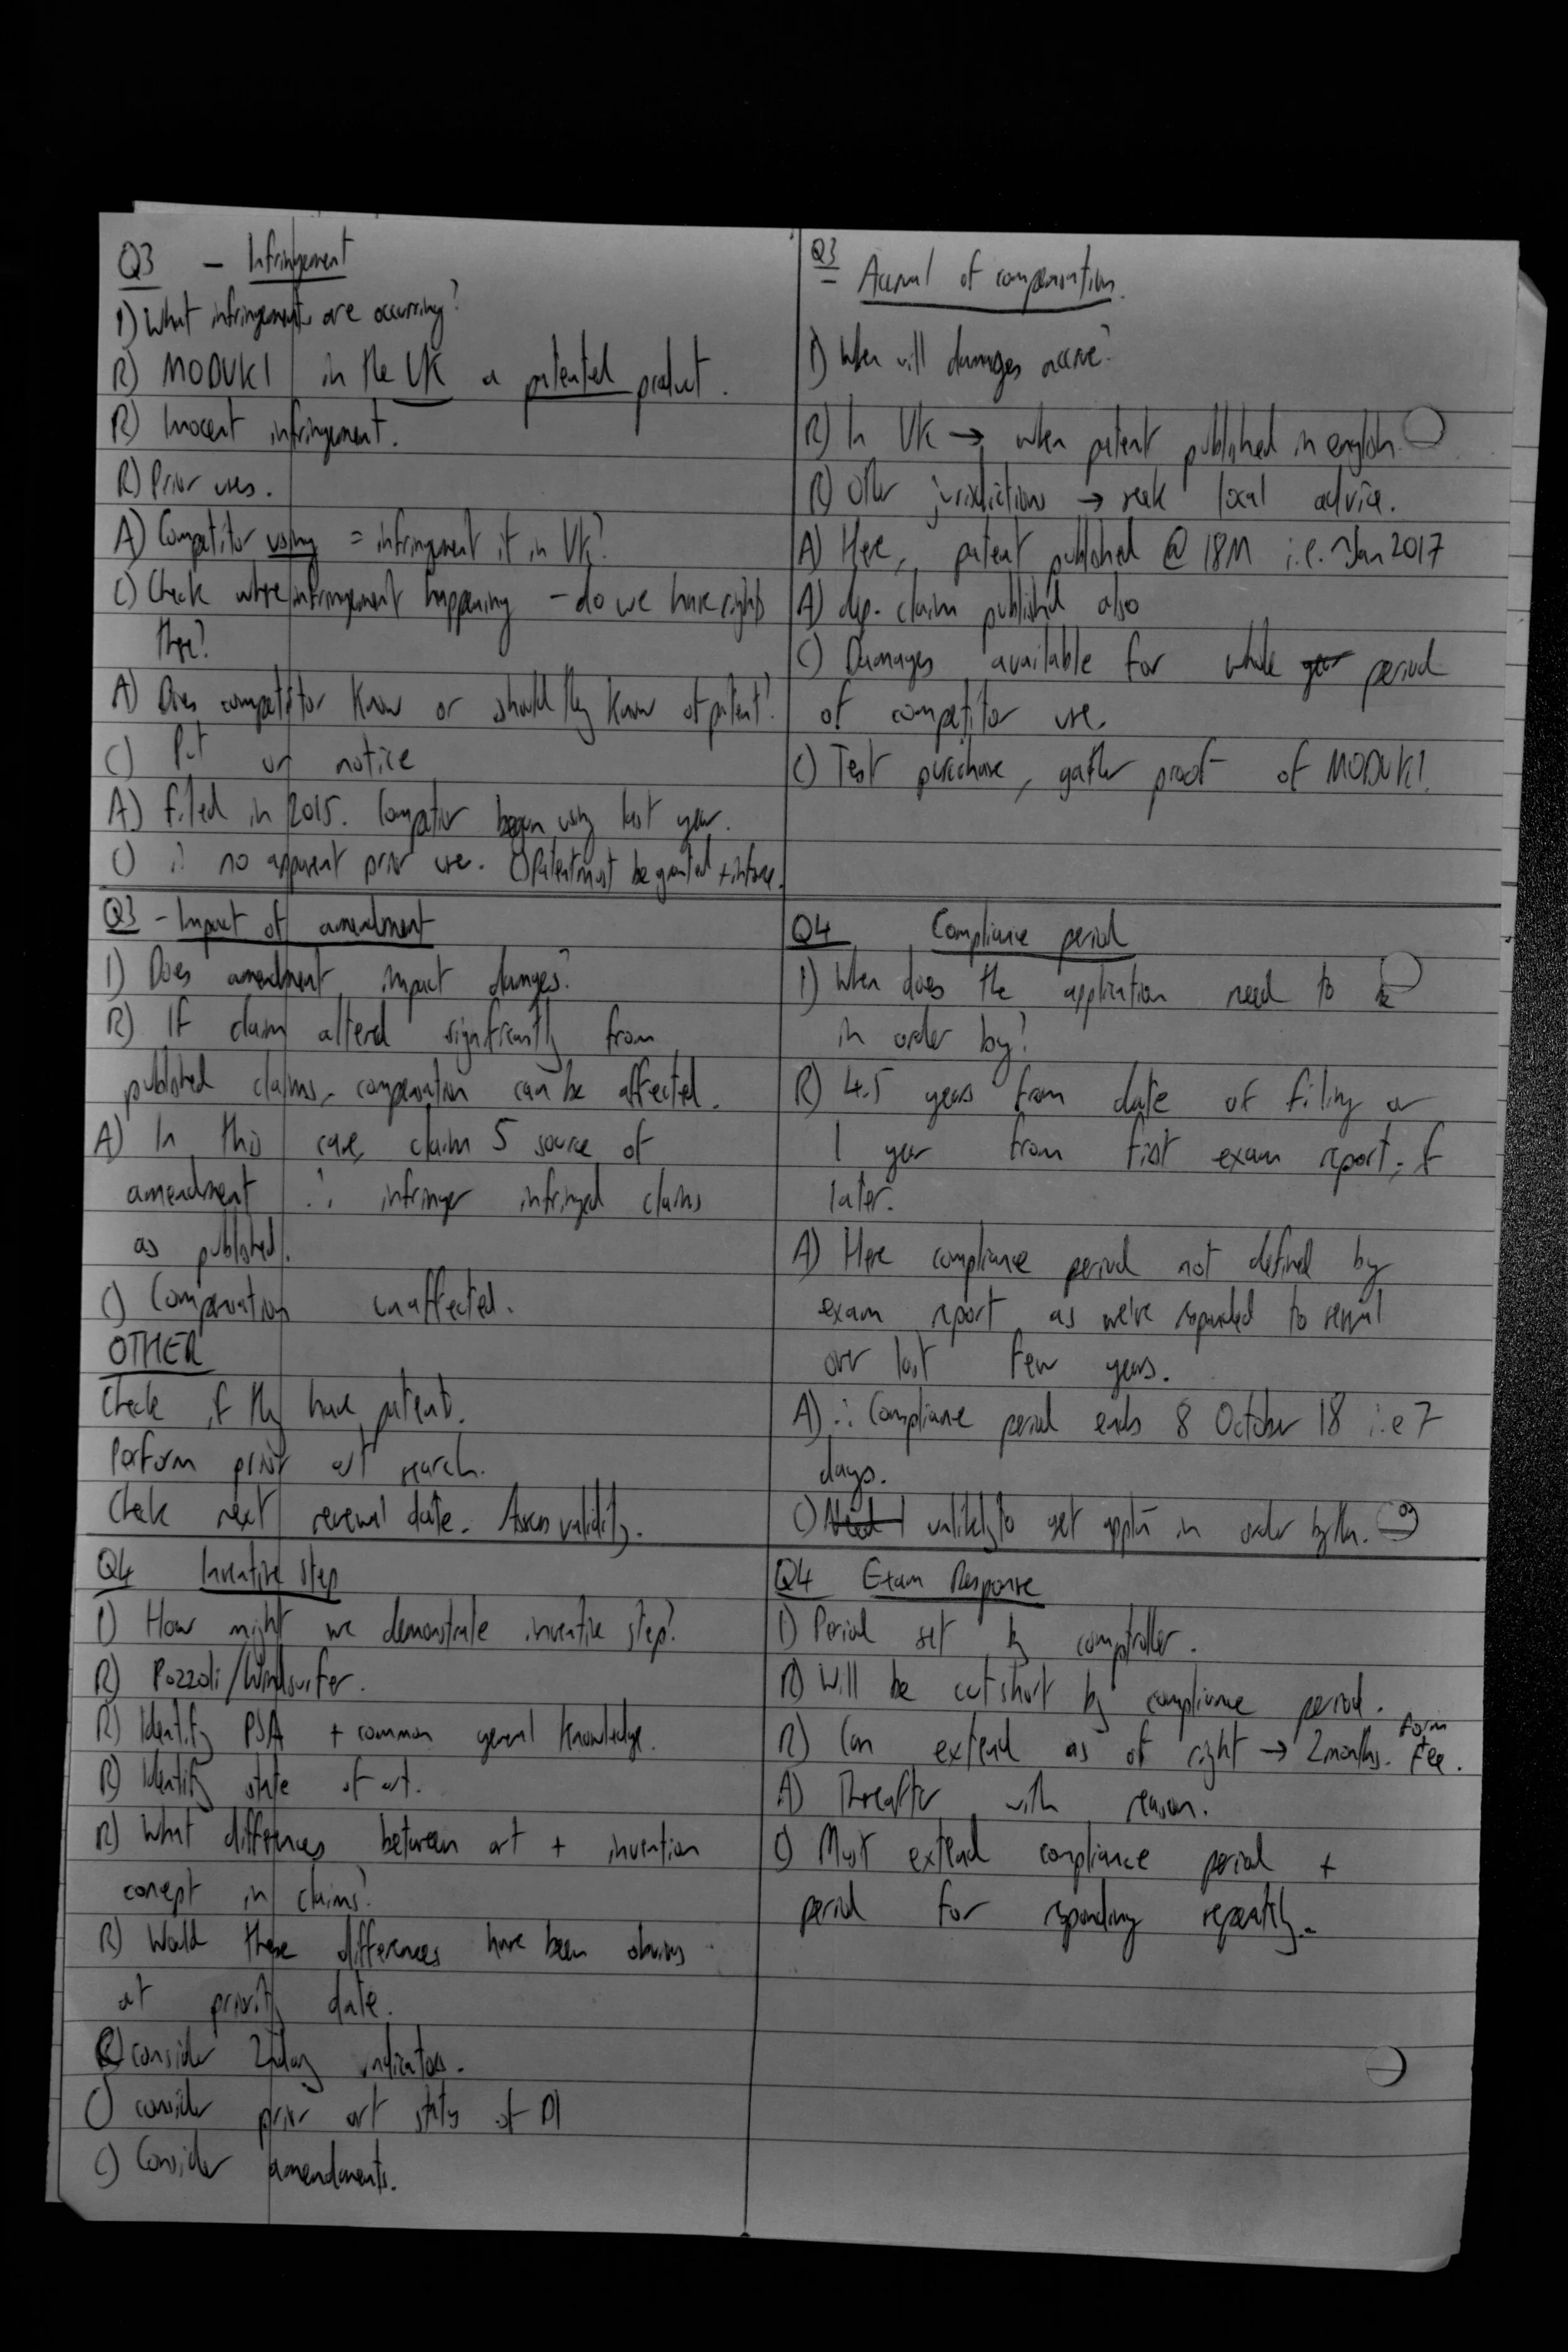 Q3 - Infringement
I) What infringements are occurring?
R) MODUKI in the UK a patented product.
R) Inocent infringement.
R) Prior uses.
A) Competitor using = infringement if in UK?
C) Check where infringement happening - do we have rights
there?
A) Does competitor know or should they know of patent?
C) Put on notice
A) Filed in 2015. Competitor began using last year.
C) ∴ no apparent prior use. C) Patent must be granted + inforce.
Q3
Accrual of compensation.
I) When will damages accrue?
R) In UK → when patent published in english
R) Other jurisdictions → seek local advice.
A) Here, patent published @ 18M i.e. ~Jan 2017
A) dep. claim published also
C) Damages available for whole period
of competitor use.
C) Test purchase, gather proof of MODUKI.
Q3 - Impact of amendment
I) Does amendment impact damages?
R) If claim altered significantly from
published claims, compensation can be affected.
A) In this case, claim 5 source of
amendment ∴ infringer infringed claims
as published.
C) Compensation unaffected.
OTHER
Check if they have patent.
Perform prior art search.
Check next renewal date. Assess validity.
Q4 Compliance period
I) When does the application need to be
in order by?
R) 4.5 years from date of filing or
1 year from first exam report, if
later.
A) Here compliance period not defined by
exam report as we've responded to several
over last few years.
A) ∴ Compliance period ends 8 October 18 i.e 7
days.
C) unlikely to get appln in order by then.
Q4 Inventive step
I) How might we demonstrate inventive step?
R) Pozzoli/Windsurfer.
R) Identify PSA + common general knowledge.
R) Identify state of art.
R) What differences between art + invention
concept in claims?
R) Would these differences have been obvious
at priority date.
R) consider 2ndary indicators.
C) consider prior art status of D1
C) Consider amendments.
Q4 Exam Response
I) Period set by comptroller.
R) Will be cut short by compliance period.
R) Can extend as of right → 2 months. Form + Fee.
A) Thereafter with reason.
C) Must extend compliance period +
period for responding repeatedly.